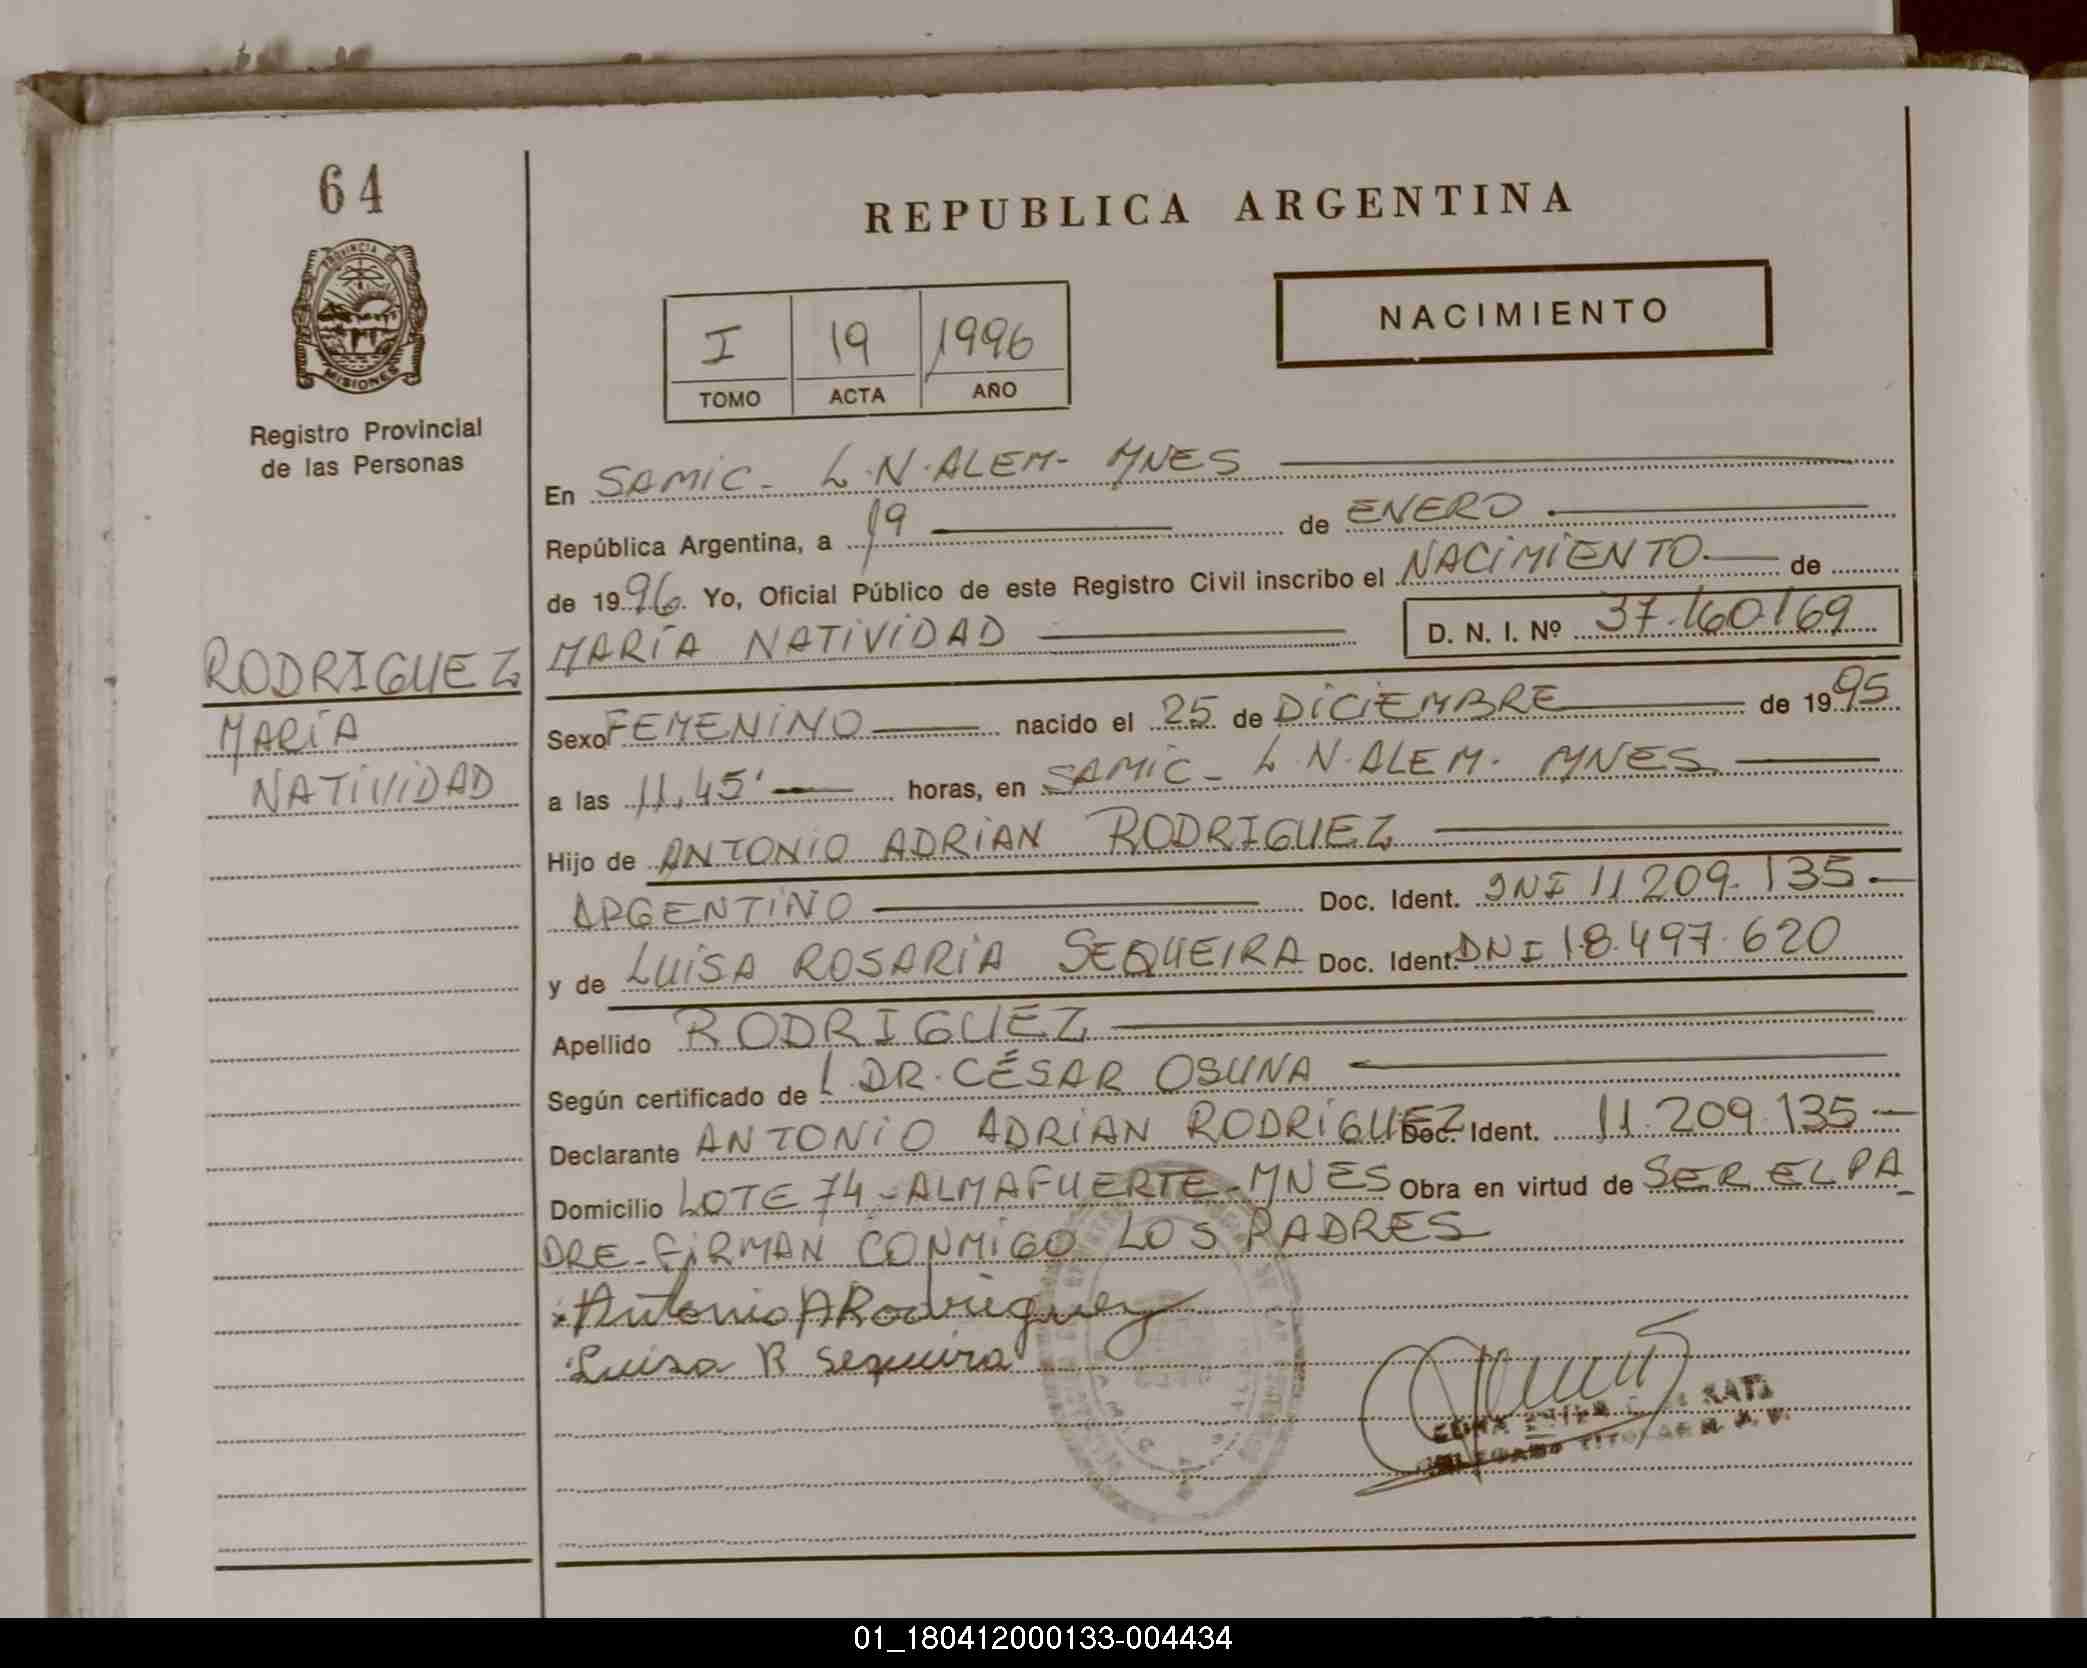 64
PROVINCIA DE
MISIONES
Registro Provincial
de las Personas
REPUBLICA ARGENTINA
NACIMIENTO
I 19 1996
TOMO ACTA AÑO
En SAMIC - L.N.ALEM- MNES
República Argentina, a 19 de ENERO
de 1996. Yo, Oficial Público de este Registro Civil inscribo el NACIMIENTO de
MARÍA NATIVIDAD D. N. I. Nº 37.160.169
RODRIGUEZ
MARÍA
NATIVIDAD
Sexo FEMENINO nacido el 25 de DICIEMBRE de 1995
a las 11,45' horas, en SAMIC - L.N.ALEM. MNES
Hijo de ANTONIO ADRIAN RODRIGUEZ
ARGENTINO Doc. Ident. DNI 11.209.135.-
y de LUISA ROSARIA SEQUEIRA Doc. Ident. DNI 18.497.620
Apellido RODRIGUEZ
Según certificado de L.DR.CÉSAR OSUNA
Declarante ANTONIO ADRIAN RODRÍGUEZ Doc. Ident. 11.209.135-
Domicilio LOTE 74-ALMAFUERTE-MNES Obra en virtud de SER EL PA-
DRE-FIRMAN CONMIGO LOS PADRES
Antonio A Rodriguez
Luisa R Sequeira
EDNA
TITULAR
01_180412000133-004434